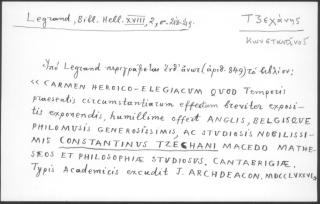 Legrand, Bibl. Hell. XVIII, 2, σ. 212-213.
Τζεχάνης
Κωνσταντῖνος
Ὑπὸ Legrand περιγράφεται ἐνθ' ἄνωτ. (ἀριθ. 849) τὸ βιβλίον:
<< CARMEN HEROICO-ELEGIACUM QUOD Temporis
praesentis circumstantiarum effectum breviter exposi-
tis exponendis, humillime offert ANGLIS, BELGISQUE
PHILOMUSIS GENEROSISSIMIS, AC STUDIOSIS NOBILISSI-
MIS CONSTANTINUS TZECHANI MACEDO MATHE-
SEOS ET PHILOSOPHIÆ STUDIOSUS. CANTABRIGIÆ.
Typis Academicis excudit J. ARCHDEACON. MDCCLXXVI>>